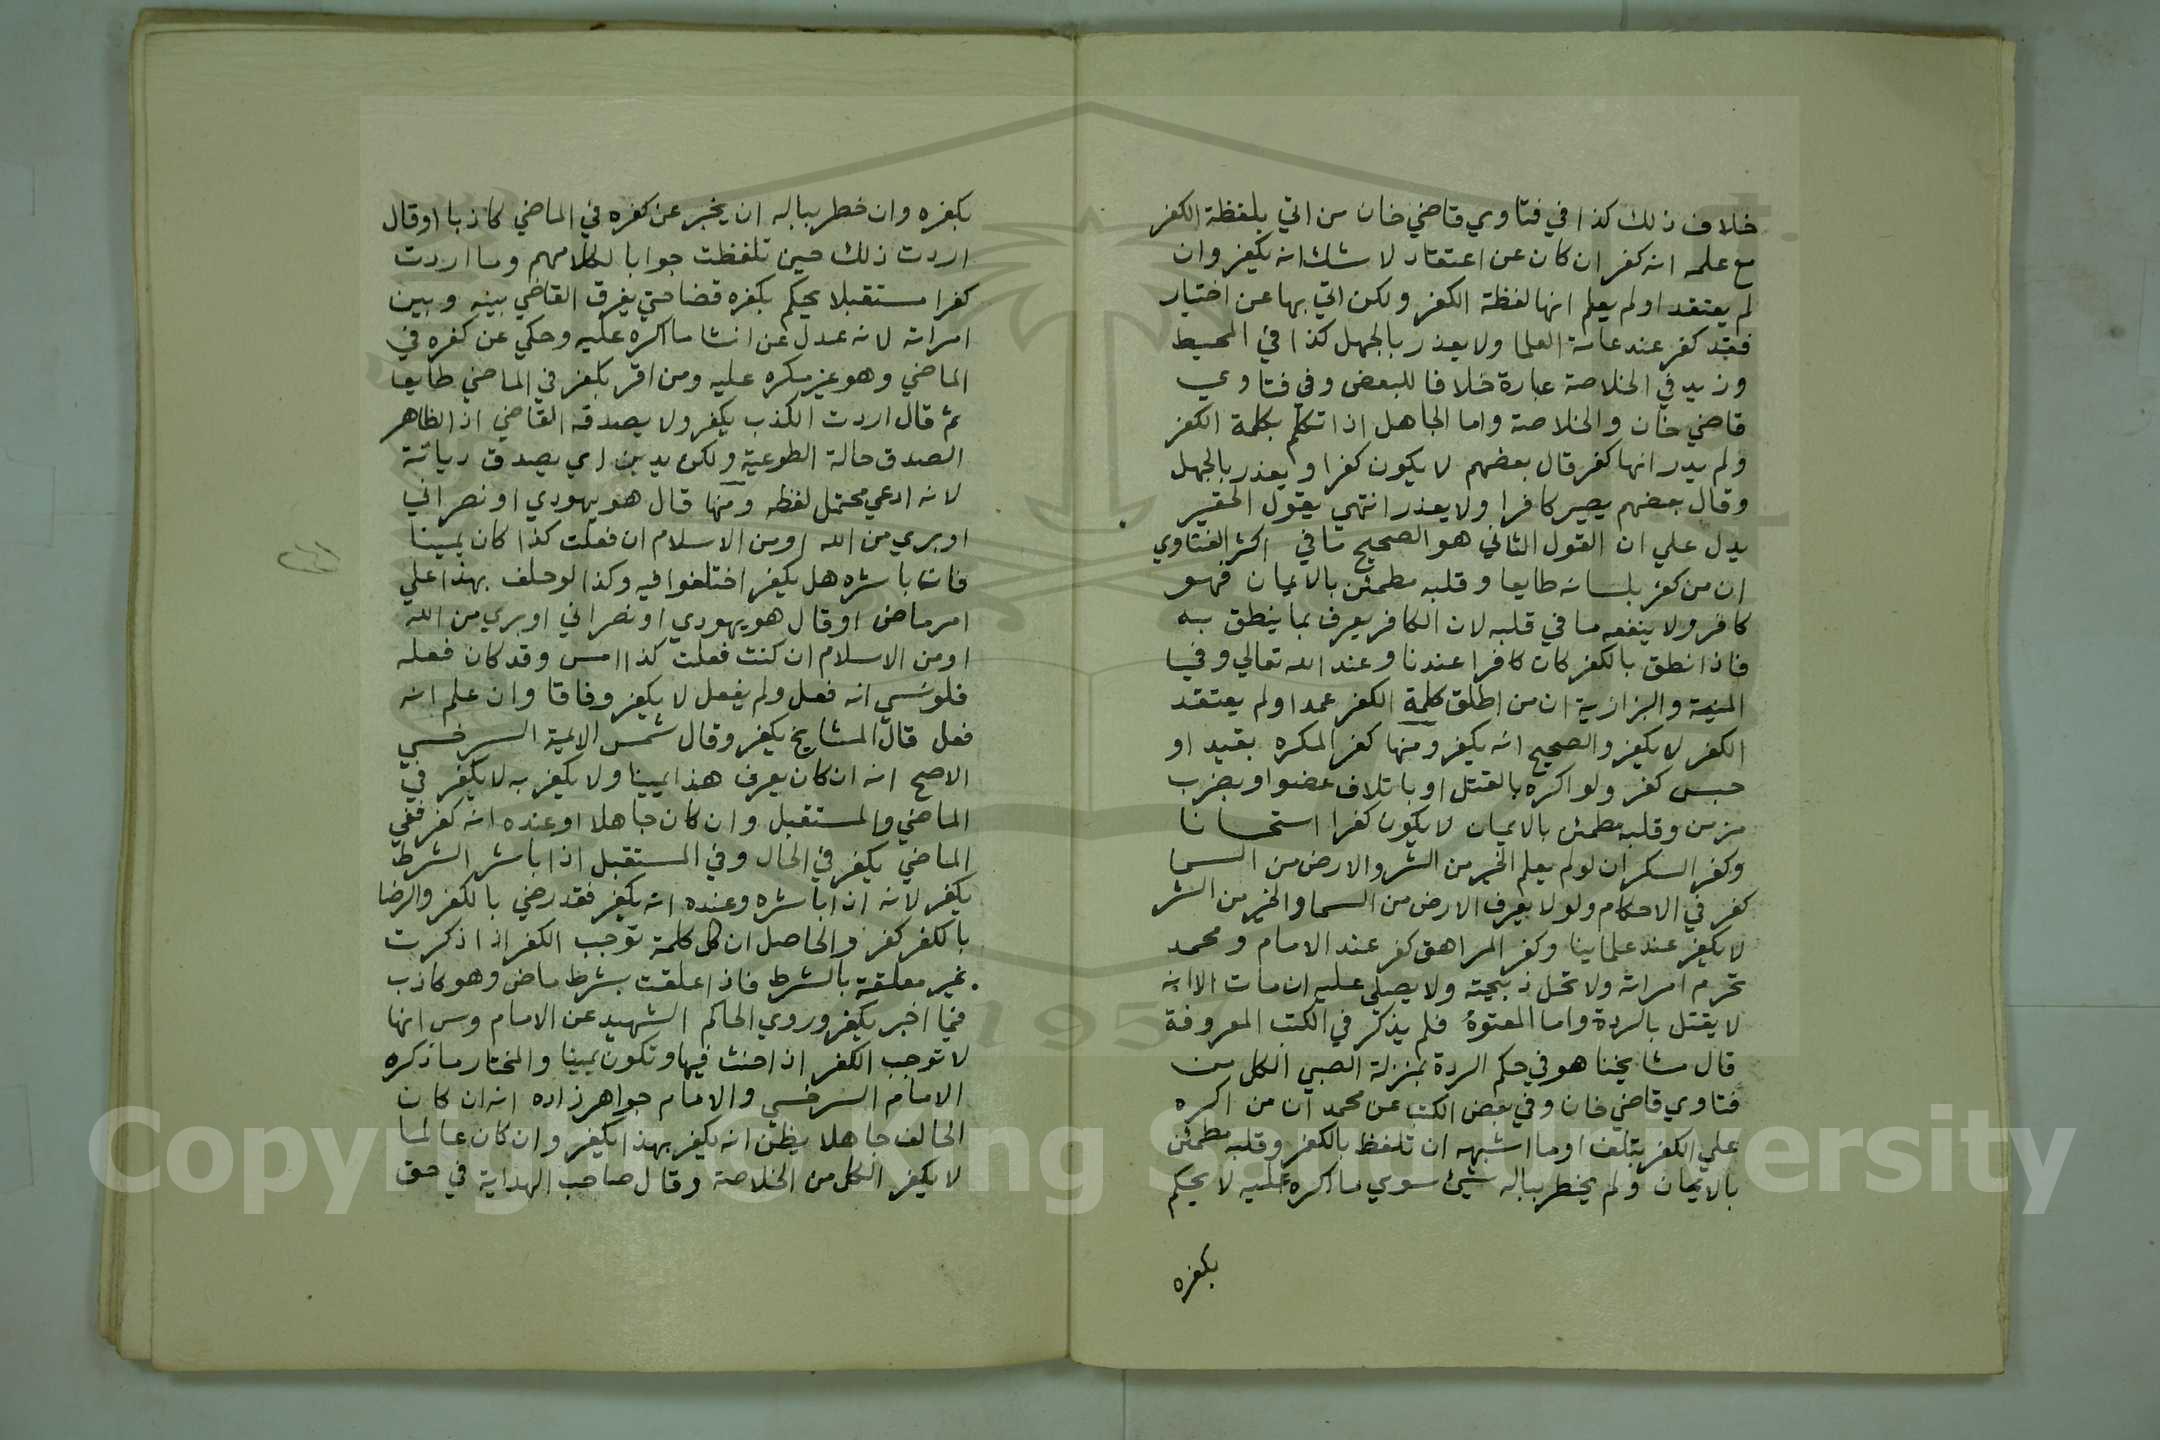 خلاف ذلك كذا في فتاوي قاضي خان من اتي بلفظة الكفر
مع علمه انه كفر ان كان عن اعتقاد لا شك انه يكفر وان
لم يعتقد او لم يعلم انها لفظة الكفر ولكن اتي بها عن اختيار
فقد كفر عند عامة العلما ولا يعذر بالجهل كذا في المحيط
وزيد في الخلاصة عبارة خلافا للبعض وفي فتاوي
قاضي خان والخلاصة واما الجاهل اذا تكلم بكلمة الكفر
ولم يدر انها كفر قال بعضهم لا يكون كفرا ويعذر بالجهل
وقال بعضهم يصير كافرا ولا يعذر انتهي يقول الحقير
يدل علي ان القول الثاني هو الصحيح ما في اكثر الفتاوي
ان من كفر بلسانه طايعا وقلبه مطمئن بالايمان فهو
كافر ولا ينفعه ما في قلبه لان الكافر يعرف بما ينطق به
فاذا نطق بالكفر كان كافرا عندنا وعند الله تعالي وفي
المنية والبزازية ان من اطلق كلمة الكفر عمدا ولم يعتقد
الكفر لا يكفر والصحيح انه يكفر ومنها كفر المكره بقيد او
حبس كفر ولو اكره بالقتل او باتلاف عضو او بضرب
مزمن وقلبه مطمئن بالايمان لا يكون كفرا استحسانا
وكفر السكران لو لم يعلم الخير من الشر والارض من السما
كفر في الاحكام ولو لا يعرف الارض من السما والخير من الشر
لا يكفر عند علماينا وكفر المراهق كفر عند الامام ومحمد
تحرم امراته ولا تحل ذبيحته ولا يصلي عليه ان مات الا انه
لا يقتل بالردة واما المعتوه فلم يذكر في الكتب المعروفة
قال مشايخنا هو في حكم الردة بمنزلة الصبي الكل من
فتاوي قاضي خان وفي بعض الكتب عن محمد ان من اكره
علي الكفر بتلف او ما اشبهه ان تلفظ بالكفر وقلبه مطمئن
بالايمان ولم يخطر بباله شيئ سوي ما اكره عليه لا يحكم
بكفره
بكفره وان خطر بباله ان يخبر عن كفره في الماضي كاذبا او قال
اردت ذلك حين تلفظت جوابا لكلامهم وما اردت
كفرا مستقبلا يحكم بكفره قضا حتي يفرق القاضي بينه وبين
امراته لانه عدل عن انشا ما اكره عليه وحكي عن كفره في
الماضي وهو غير مكره عليه ومن اقر بكفر في الماضي طايعا
ثم قال اردت الكذب يكفر ولا يصدقه القاضي اذ الظاهر
الصدق حالة الطوعية ولكن يدين اي يصدق ديانة
لانه ادعي محتمل لفظه ومنها قال هو يهودي او نصراني
او بري من الله او من الاسلام ان فعلت كذا كان يمينا
فان باشره هل يكفر اختلفوا فيه وكذا لو حلف بهذا علي
امر ماض او قال هو يهودي او نصراني او بري من الله
او من الاسلام ان كنت فعلت كذا امس وقد كان فعله
فلو نسي انه فعل ولم يفعل لا يكفر وفاقا وان علم انه
فعل قال المشايخ يكفر وقال شمس الايمة السرخسي
الاصح انه ان كان يعرف هذا يمينا ولا يكفر به لا يكفر في
الماضي والمستقبل وان كان جاهلا او عنده انه كفر ففي
الماضي يكفر في الحال وفي المستقبل اذا باشر الشرط
يكفر لانه اذا باشره وعنده انه يكفر فقد رضي بالكفر والرضا
بالكفر كفر والحاصل ان كل كلمة توجب الكفر اذا ذكرت
غير معلقة بالشرط فاذا علقت بشرط ماض وهو كاذب
فيما اخبر يكفر وروي الحاكم الشهيد عن الامام وس انها
لا توجب الكفر اذا حنث فيها وتكون يمينا والمختار ما ذكره
الامام السرخسي والامام جواهرزاده انه ان كان
الحالف جاهلا يظن انه يكفر بهذا يكفر وان كان عالما
لا يكفر الكل من الخلاصة وقال صاحب الهداية في حق
1957
Copyright © King Saud University